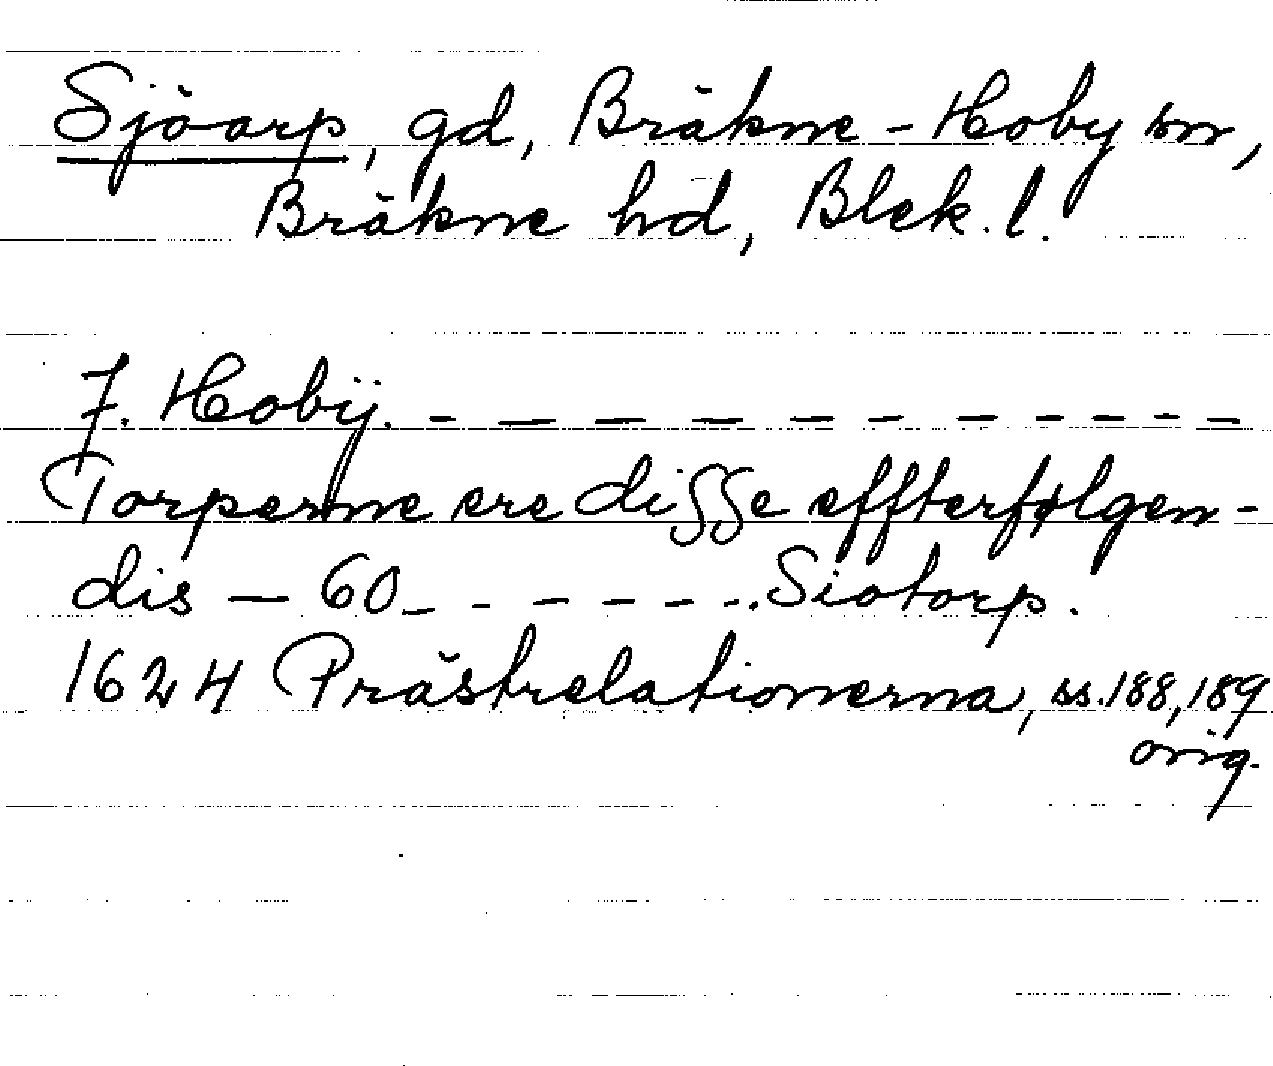 Sjöarp, gd, Bräkne-Hoby sn,
Bräkne hd, Blek. l.
J. Hobÿ. - - - - - - - - - - -
Torperne ere disse effterfølgen-
dis — 60 - - - - - - . Siotorp.
1624 Prästrelationerna, ss. 188, 189
orig.